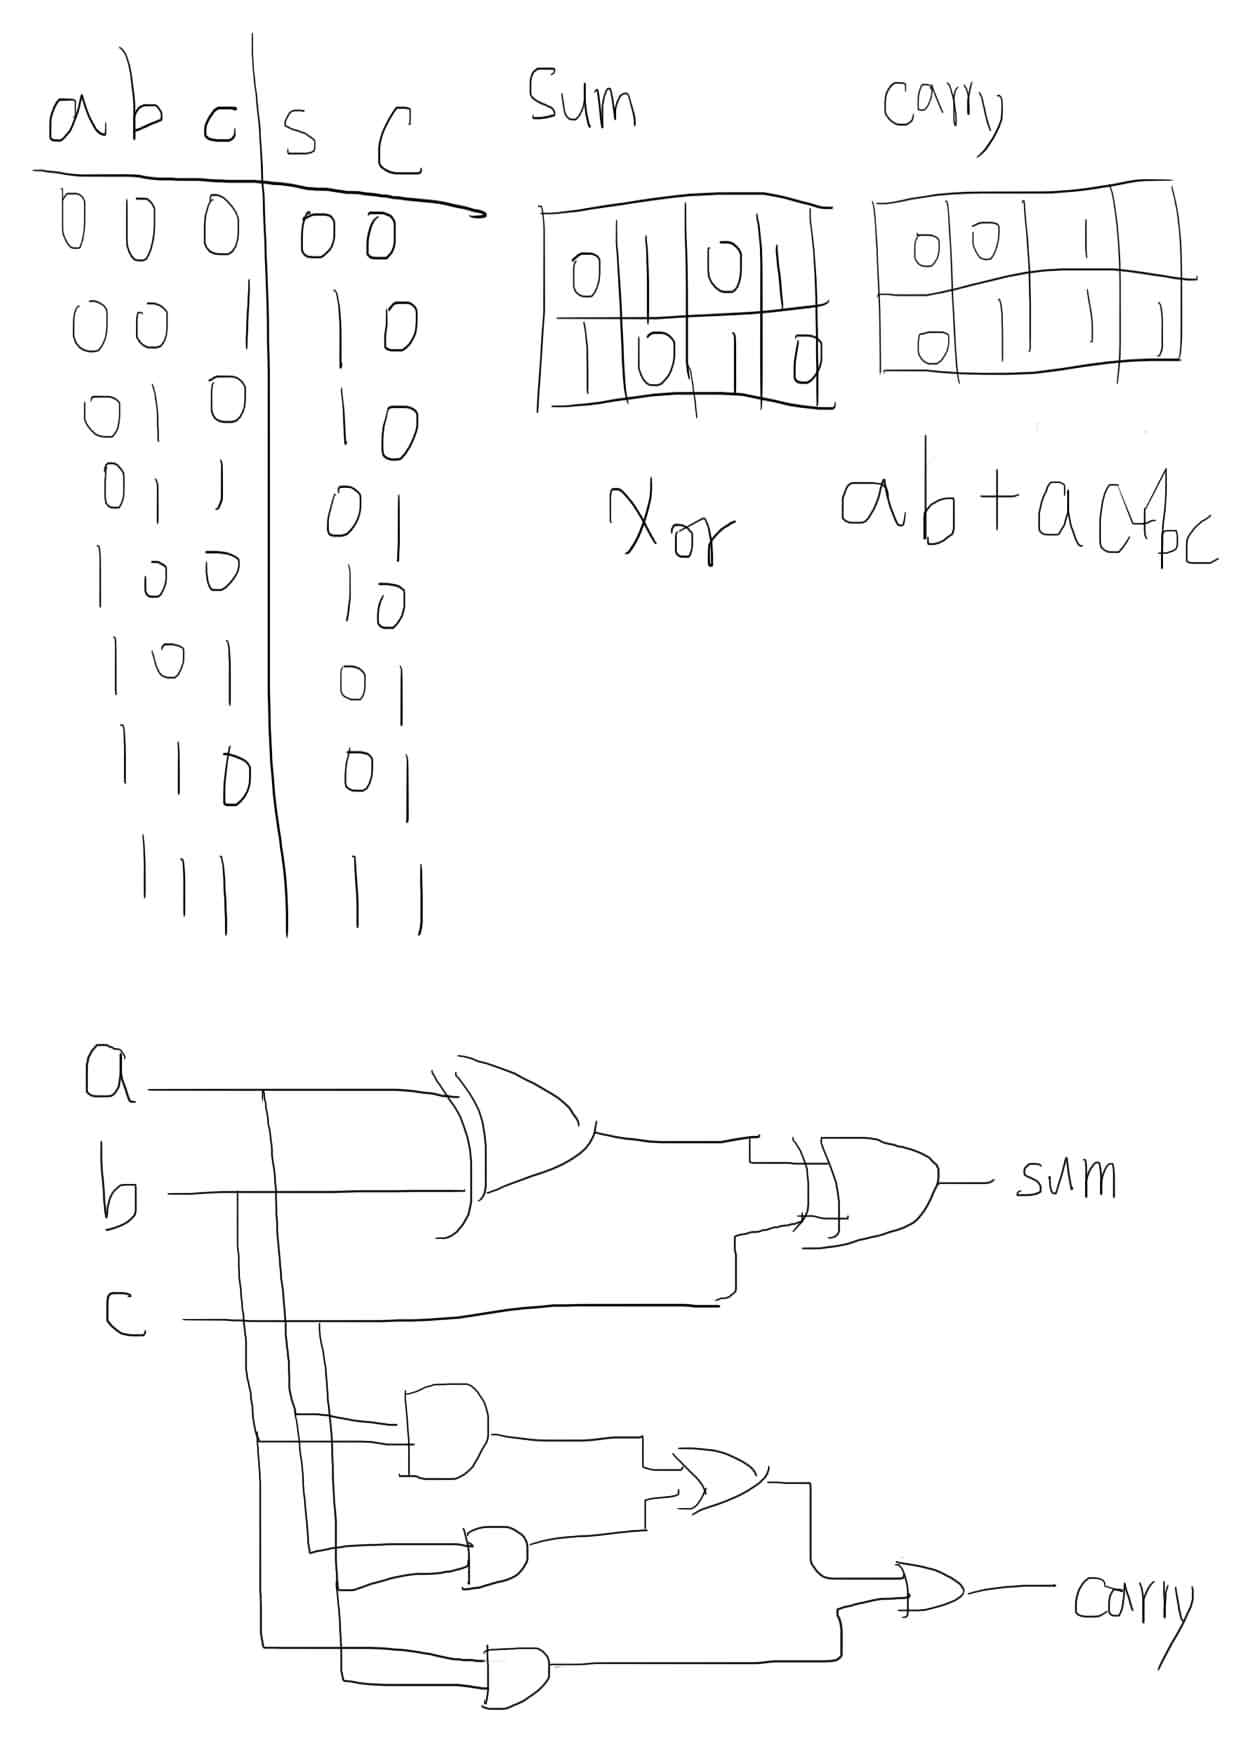 a b c s C
0 0 0 0 0
0 0 1 1 0
0 1 0 1 0
0 1 1 0 1
1 0 0 1 0
1 0 1 0 1
1 1 0 0 1
1 1 1 1 1
sum
0 1 0 1
1 0 1 0
xor
carry
0 0 1
0 1 1 1
ab+ac+bc
a
b
c
sum
carry